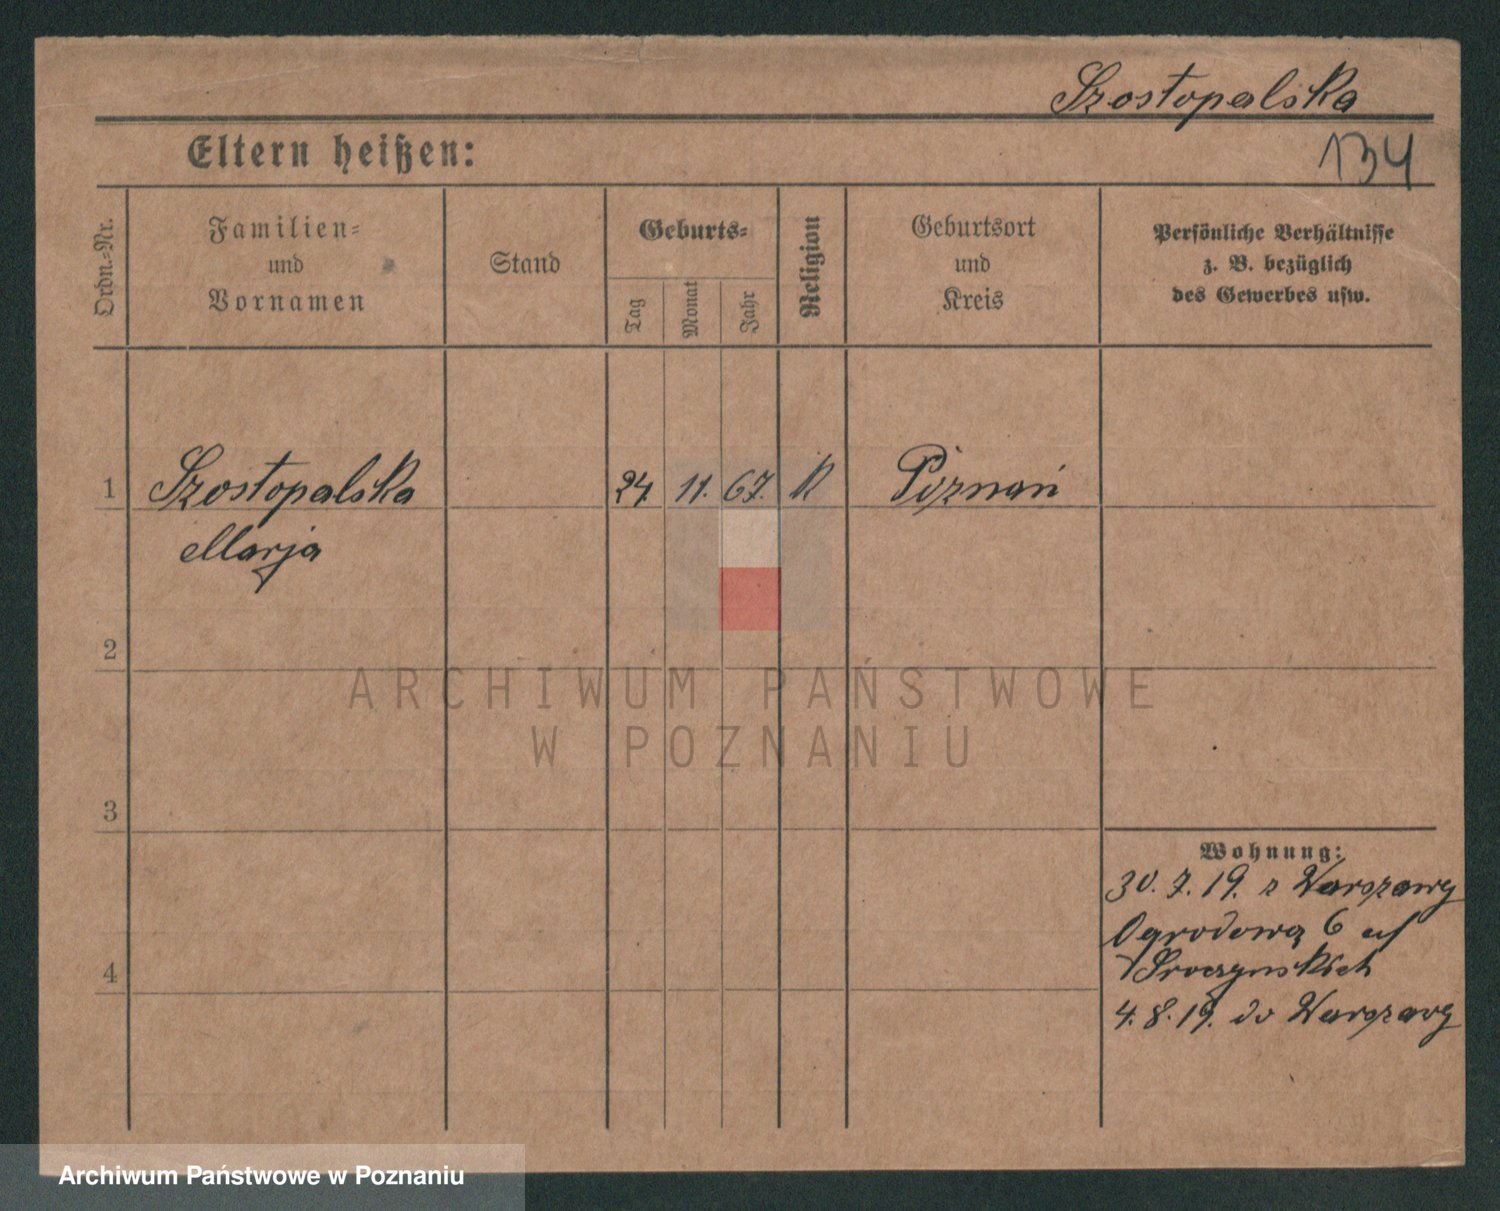 Szostopalska
134
Eltern heißen:
Ordn.-Nr.
Familien-
und
Vornamen
Stand
Geburts-
Tag
Monat
Jahr
Religion
Geburtsort
und
Kreis
Persönliche Verhältnisse
z. B. bezüglich
des Gewerbes usw.
1 Szostopalska 24. 11. 67. K Poznań
Marja
2
3
4
Wohnung:
30. 7. 19. z Warszawy
Ogrodowa 6
4. 8. 19. do Warszawy
ARCHIWUM PAŃSTWOWE
W POZNANIU
Archiwum Państwowe w Poznaniu